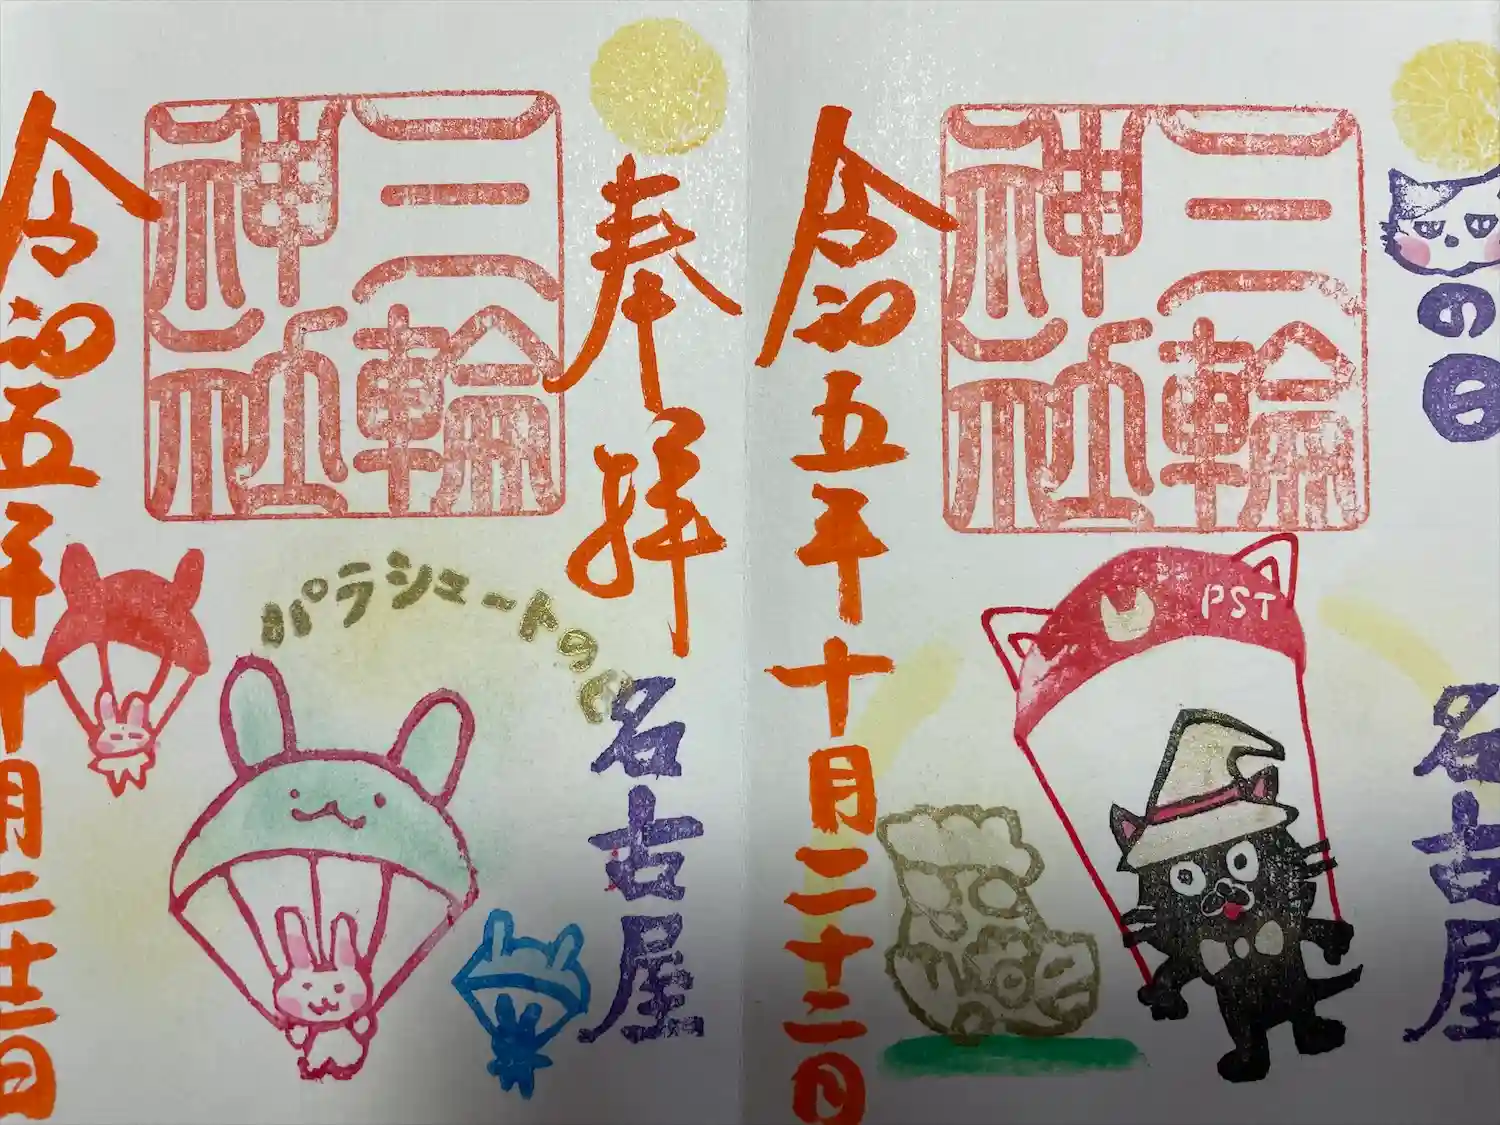 奉拝
名古屋
三輪
神社
パラシュートの日
令和五年十月二十二日
の日
名古屋
三輪
神社
PST
令和五年十月二十二日